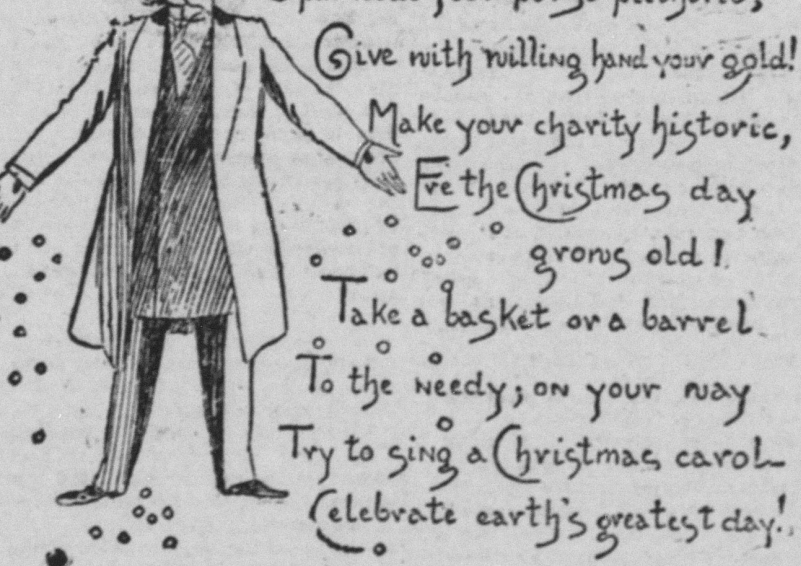 your purse plethoric,
Give with willing hand your gold!
Make your charity historic,
Ere the Christmas day
grows old!
Take a basket or a barrel
To the needy; on your way
Try to sing a Christmas carol—
Celebrate earth's greatest day!